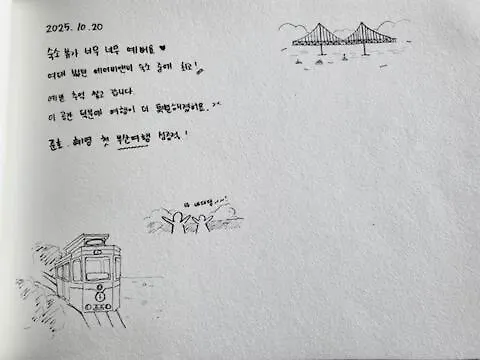 2025.10.20
숙소 뷰가 너무 너무 예뻐요 ♥
여태 봤던 에어비앤비 숙소 중에 최고!
예쁜 추억 쌓고 갑니다.
이 공간 덕분에 여행이 더 특별해졌어요. ^^
준호, 혜영 첫 부산여행 성공적!